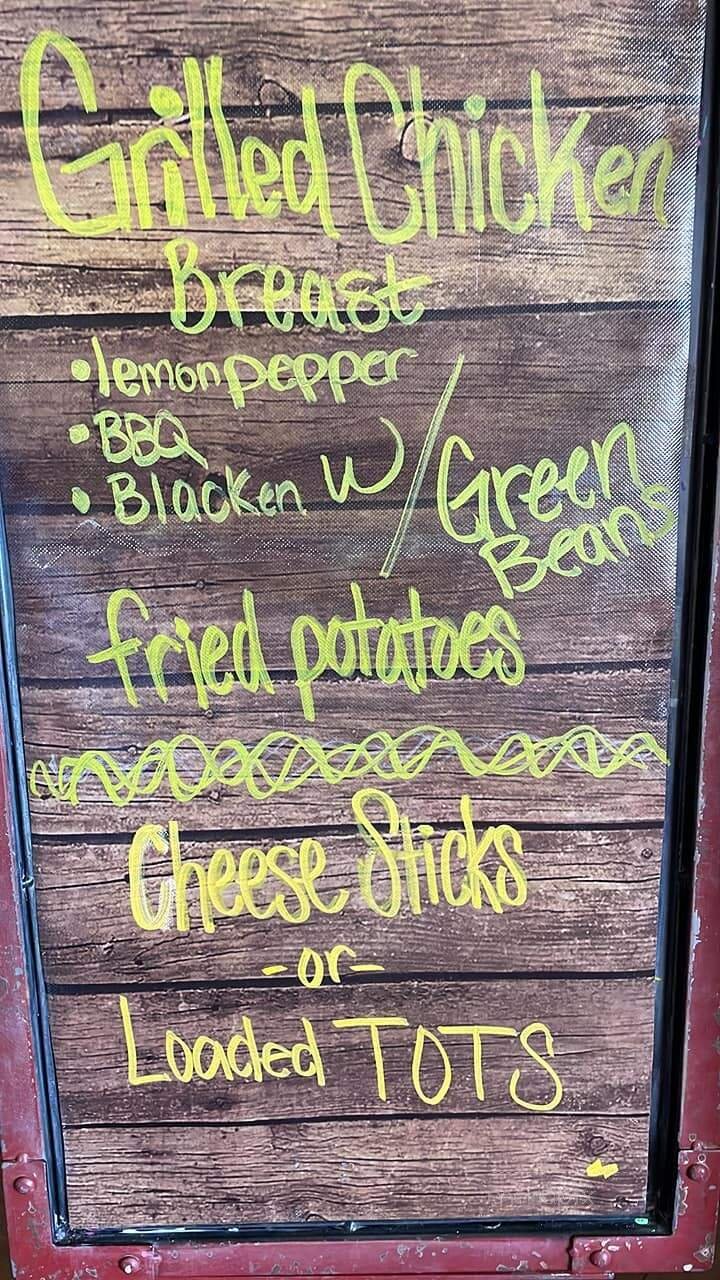 Grilled Chicken
Breast
• lemon pepper
• BBQ
• Blacken w/ Green
Beans
fried potatoes
Cheese Sticks
-or-
Loaded TOTS